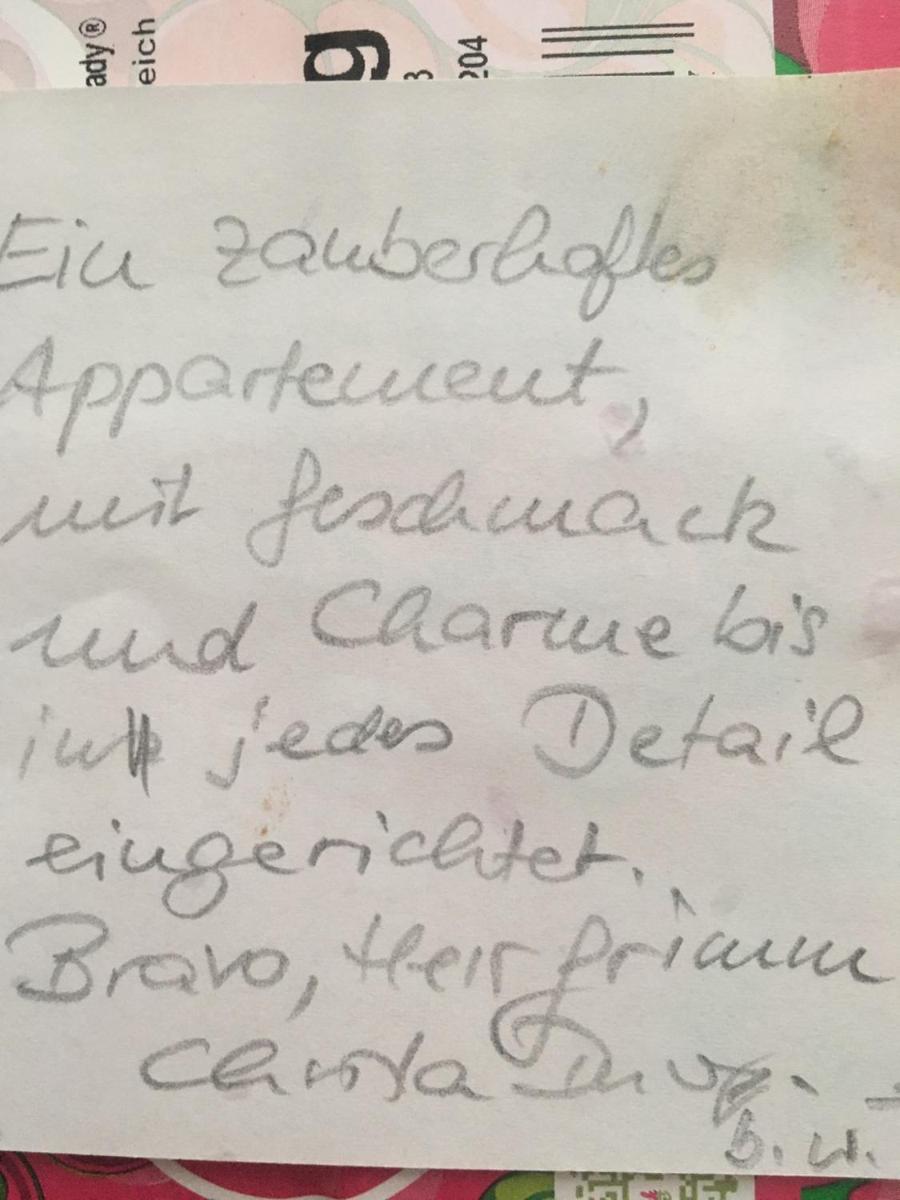 ady®
eich
g
3
204
Ein zauberhaftes
Appartement,
mit Geschmack
und Charme bis
in jedes Detail
eingerichtet.
Bravo, Herr Grimm
Christa
b. w.